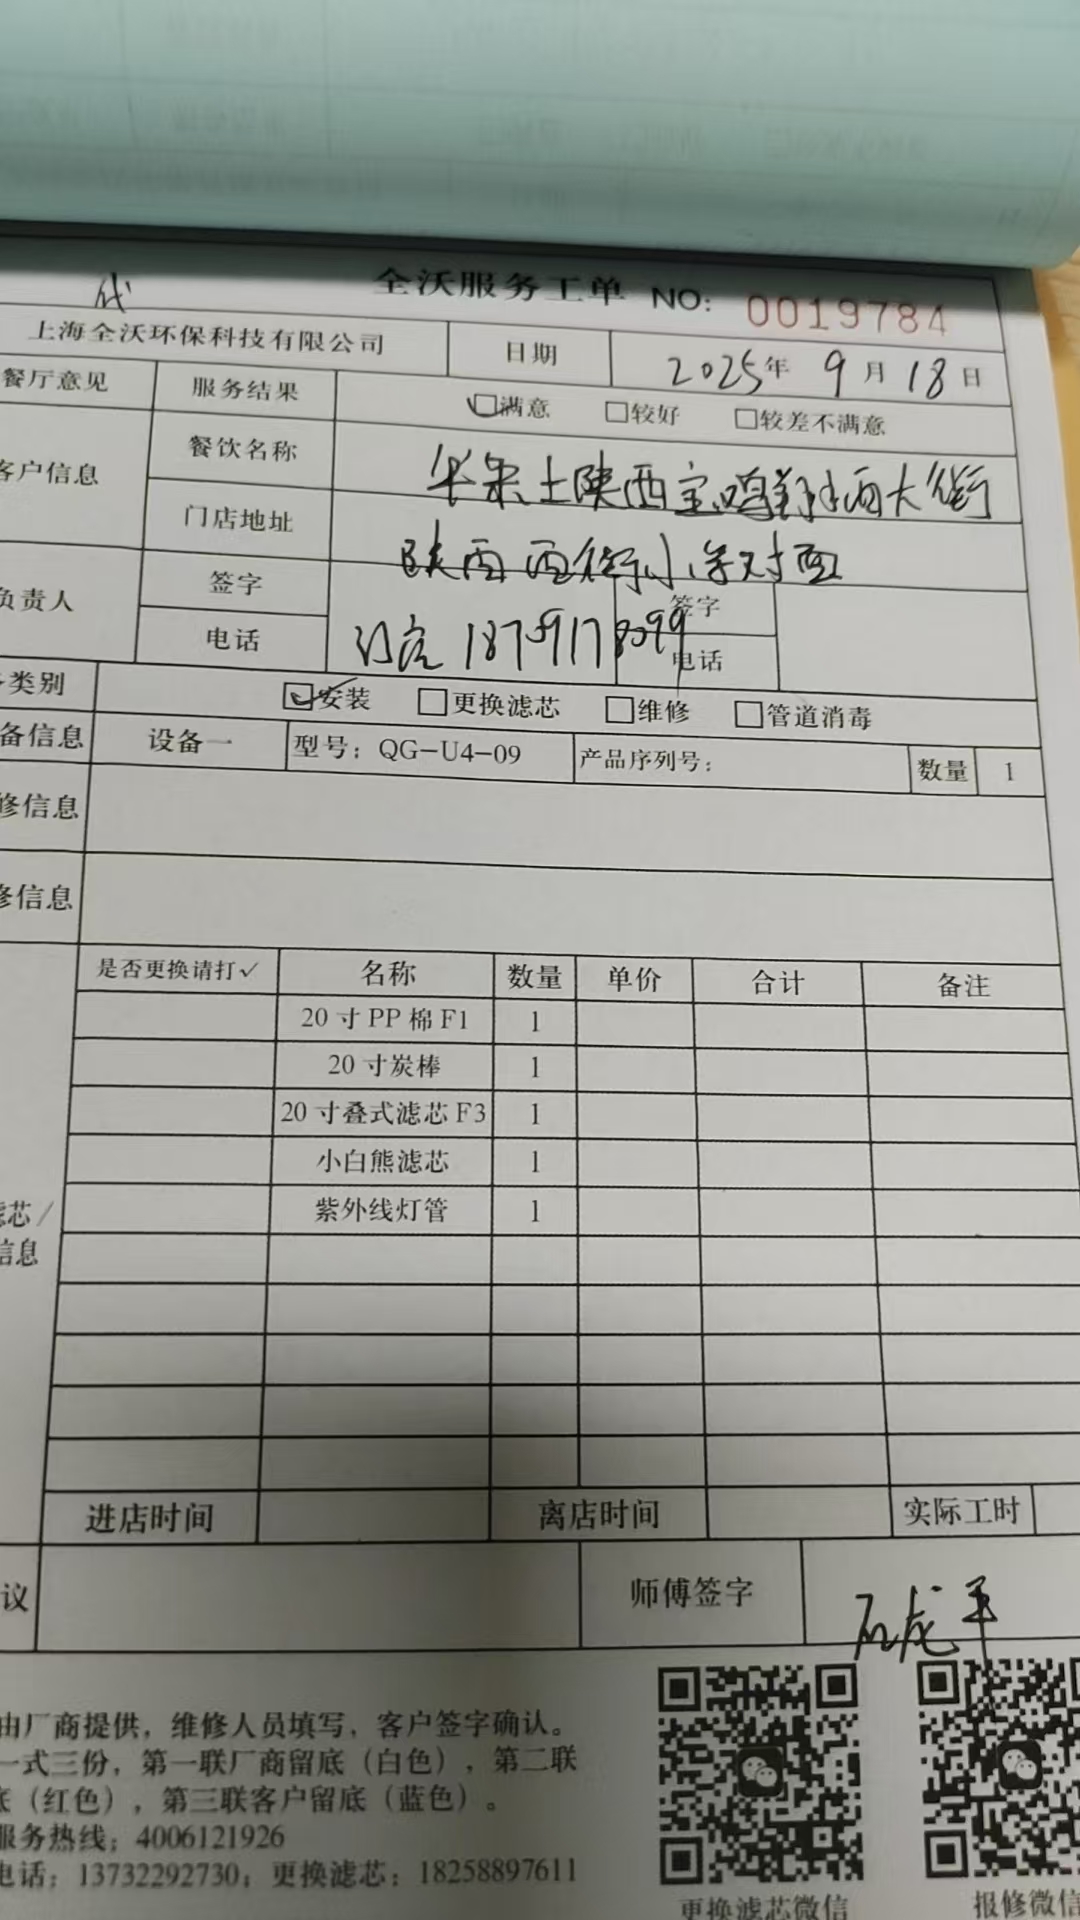 代
全沃服务工单 NO: 0019784
上海全沃环保科技有限公司 日期 2025年 9月 18日
餐厅意见 服务结果 ☑满意 □较好 □较差不满意
客户信息 餐饮名称 陕西宝鸡 西大街
门店地址 陕西 西街小学对面
负责人 签字 签字
电话 门店 电话
类别 ☑安装 □更换滤芯 □维修 □管道消毒
备信息 设备一 型号: QG-U4-09 产品序列号: 数量 1
修信息
修信息
是否更换请打✓ 名称 数量 单价 合计 备注
20寸PP棉F1 1
20寸炭棒 1
20寸叠式滤芯F3 1
小白熊滤芯 1
紫外线灯管 1
芯/
信息
进店时间 离店时间 实际工时
议 师傅签字 石龙平
由厂商提供，维修人员填写，客户签字确认。
一式三份，第一联厂商留底（白色），第二联
底（红色），第三联客户留底（蓝色）。
服务热线: 4006121926
电话: 13732292730; 更换滤芯: 18258897611
更换滤芯微信 报修微信